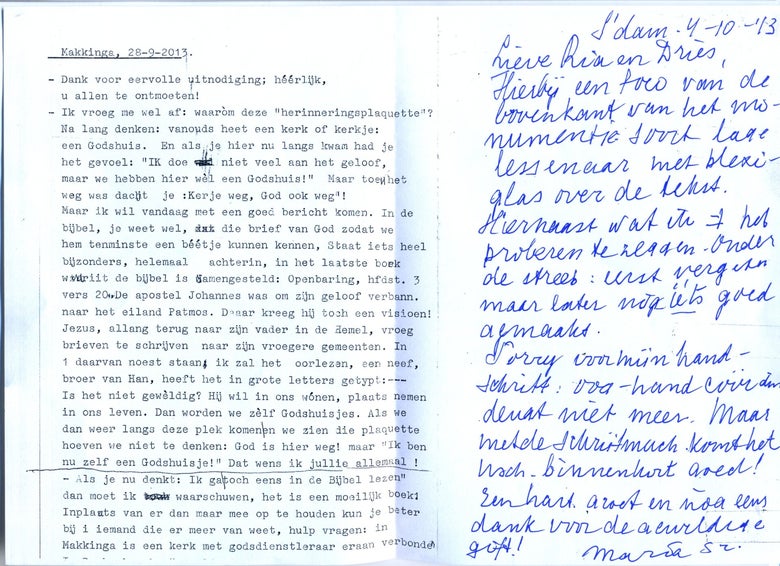 Kakkinga, 28-9-2013.
- Dank voor eervolle uitnodiging; héérlijk,
u allen te ontmoeten!
- Ik vroeg me wel af: waaròm deze "herinneringsplaquette"?
Na lang denken: vanouds heet een kerk of kerkje:
een Godshuis. En als je hier nu langs kwam had je
het gevoel: "IK doe niet veel aan het geloof,
maar we hebben hier wèl een Godshuis!" Maar toen het
weg was dacht je :Kerje weg, God ook weg"!
Maar ik wil vandaag met een goed bericht komen. In de
bijbel, je weet wel, die brief van God zodat we
hem tenminste een béétje kunnen kennen, Staat iets heel
bijzonders, helemaal achterin, in het laatste boek
waaruit de bijbel is samengesteld: Openbaring, hfdst. 3
vers 20. De apostel Johannes was om zijn geloof verbann.
naar het eiland Patmos. Daar kreeg hij toch een visioen!
Jezus, allang terug naar zijn vader in de Hemel, vroeg
brieven te schrijven naar zijn vroegere gemeenten. In
1 daarvan noest staan, ik zal het oorlezen, een neef,
broer van Han, heeft het in grote letters getypt:---
Is het niet gewèldig? Hij wil in ons wónen, plaats nemen
in ons leven. Dan worden we zèlf Godshuisjes. Als we
dan weer langs deze plek komen en we zien die plaquette
hoeven we niet te denken: God is hier weg! maar "Ik ben
nu zelf een Godshuisje!" Dat wens ik jullie allemaal !
- Als je nu denkt: Ik ga toch eens in de Bijbel lezen"
dan moet ik waarschuwen, het is een moeilijk boek!
Inplaats van er dan maar mee op te houden kun je beter
bij i iemand die er meer van weet, hulp vragen: in
Makkinga is een kerk met godsdienstleraar eraan verbonden
S'dam. 4-10-'13
Lieve Ria en Dries,
Hierbij een foto van de
bovenkant van het mo-
numentje soort lage
lessenaar met plexi-
glas over de tekst.
Hiernaast wat ik het
proberen te zeggen. Onder
de streep: eerst vergeten
maar later nog iets goed
gemaakt.
Sorry voor mijn hand-
schrift: oog-hand coördin
deugt niet meer. Maar
met de schrijfmach. komt het
hsch. binnenkort goed!
Een hart. groet en nog eens
dank voor de geweldige
gift! Maria Sr.